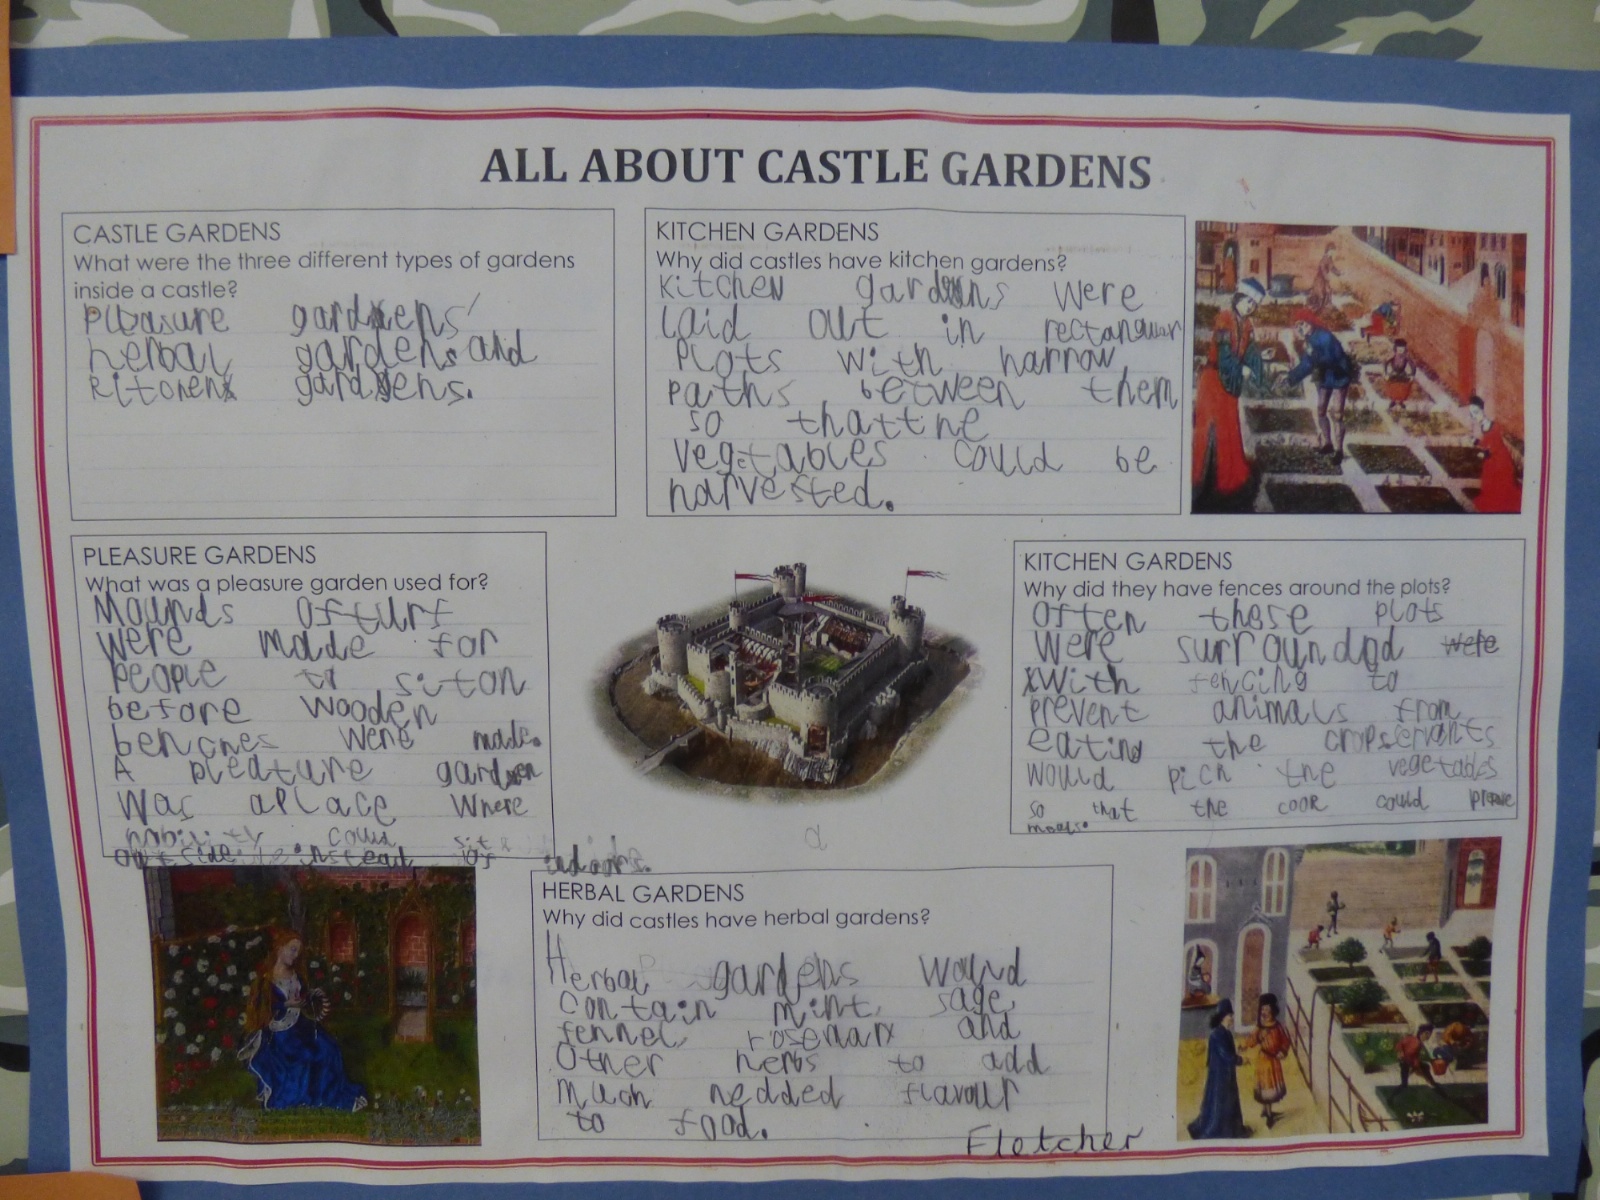 ALL ABOUT CASTLE GARDENS
CASTLE GARDENS
What were the three different types of gardens
inside a castle?
Pleasure gardens
herbal gardens and
kitchen gardens.
KITCHEN GARDENS
Why did castles have kitchen gardens?
Kitchen gardens were
laid out in rectangular
plots with narrow
paths between them
so that the
vegetables could be
harvested.
PLEASURE GARDENS
What was a pleasure garden used for?
Mounds of turf
were made for
people to sit on
before wooden
benches were made.
A pleature garden
was a place where
nobility could sit
outside instead of indoors.
KITCHEN GARDENS
Why did they have fences around the plots?
Often these plots
were surrounded were
with fencing to
prevent animals from
eating the crops servants
would pick the vegetables
so that the cook could
meals.
HERBAL GARDENS
Why did castles have herbal gardens?
Herbal gardens would
contain mint, sage,
fennel, rosemary and
other herbs to add
much nedded flavour
to food.
Fletcher